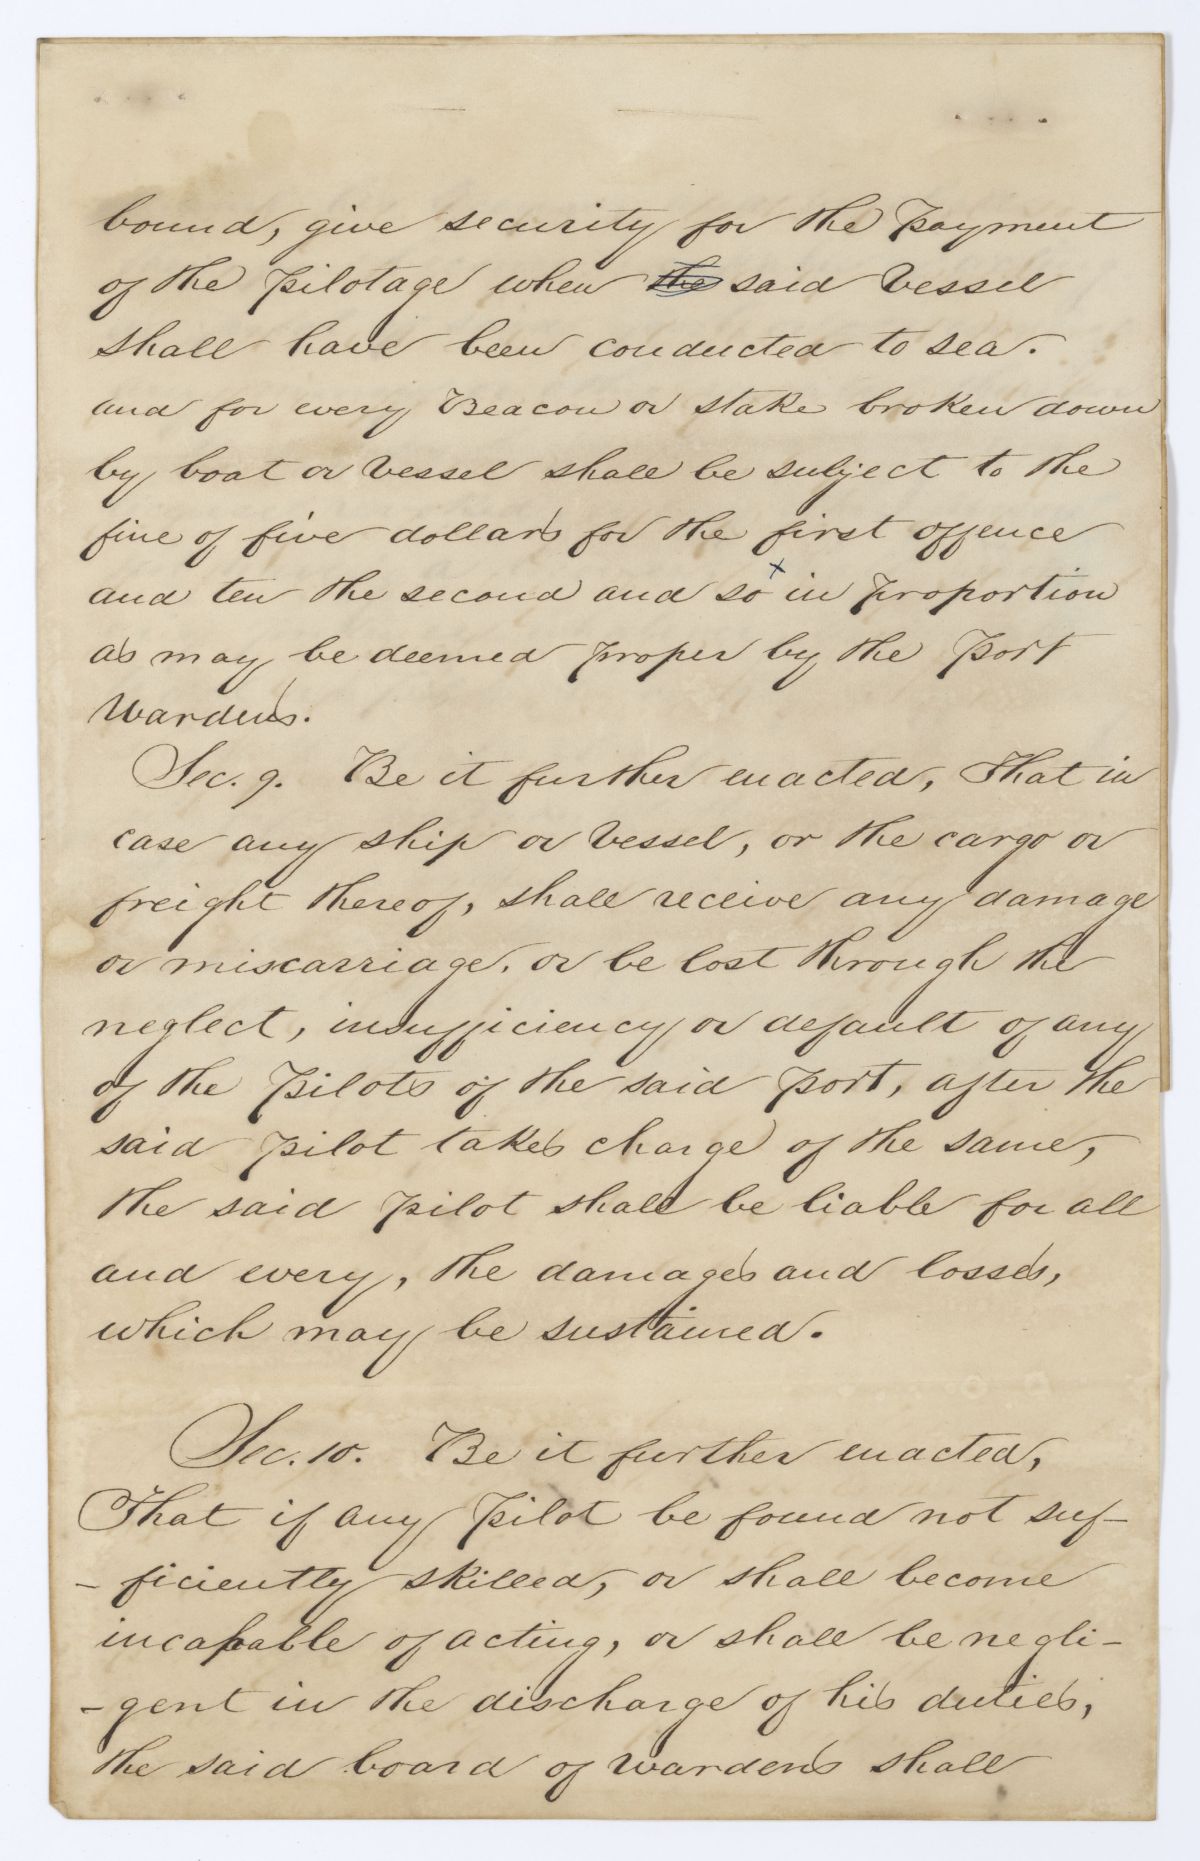 bound, give security for the Payment
of the Pilotage when the said Vessel
shall have been conducted to sea.
and for every Beacon or stake broken down
by boat or Vessel shall be subject to the
fine of five dollars for the first offence
and ten the second and so x in proportion
as may be deemed proper by the Port
Wardens.
Sec. 9. Be it further enacted, That in
case any ship or Vessel, or the cargo or
freight thereof, shall receive any damage
or miscarriage. or be lost through the
neglect, insufficiency or default of any
of the Pilots of the said Port, after the
said pilot takes charge of the same,
the said pilot shall be liable for all
and every, the damages and losses,
which may be sustained.
Sec. 10. Be it further enacted,
That if any Pilot be found not suf-
-ficiently skilled, or shall become
incapable of acting, or shall be negli-
-gent in the discharge of his duties,
the said board of wardens shall